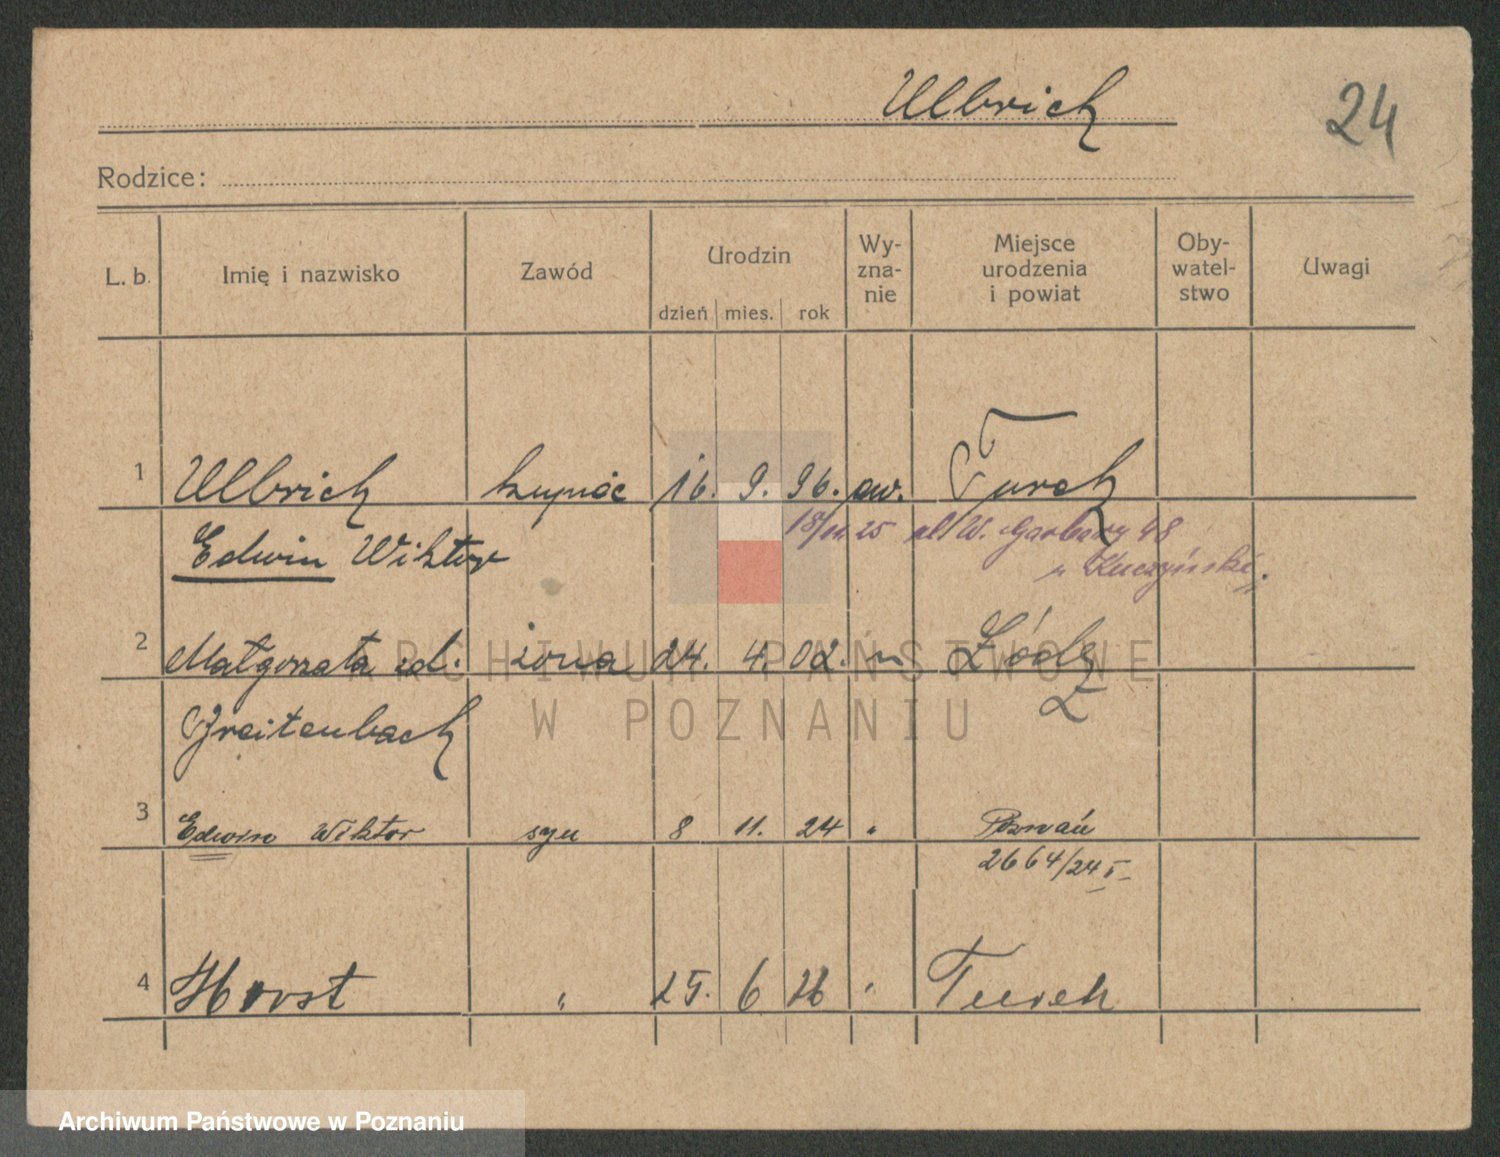 Ulbrich
24
Rodzice:
L. b. Imię i nazwisko Zawód Urodzin Wy-zna-nie Miejsce urodzenia i powiat Oby-watel-stwo Uwagi
dzień mies. rok
1 Ulbrich kupiec 16. 9. 96. ew. Turek
18/11 25 W. Garbary 48
Edwin Wiktor
u Kuczyński.
2 Małgorzata zd. żona 24. 4. 02. " Łódź
ARCHIWUM PAŃSTWOWE
W POZNANIU
Breitenbach
3 Edwin Wiktor syn 8 11. 24 " Poznań
2664/24 I
4 Horst " 25. 6 26 " Turek
Archiwum Państwowe w Poznaniu